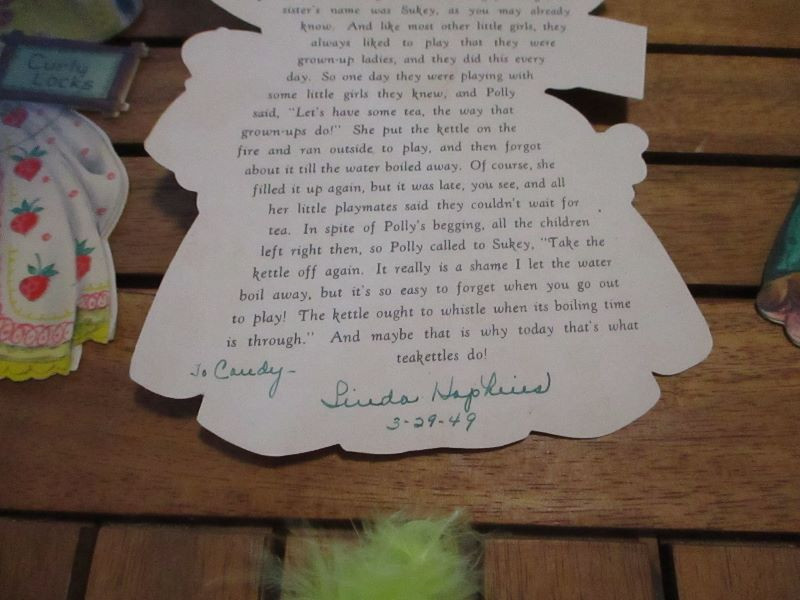 sister's name was Sukey, as you may already
know. And like most other little girls, they
always liked to play that they were
grown-up ladies, and they did this every
day. So one day they were playing with
some little girls they knew, and Polly
said, "Let's have some tea, the way that
grown-ups do!" She put the kettle on the
fire and ran outside to play, and then forgot
about it till the water boiled away. Of course, she
filled it up again, but it was late, you see, and all
her little playmates said they couldn't wait for
tea. In spite of Polly's begging, all the children
left right then, so Polly called to Sukey, "Take the
kettle off again. It really is a shame I let the water
boil away, but it's so easy to forget when you go out
to play! The kettle ought to whistle when its boiling time
is through." And maybe that is why today that's what
teakettles do!
To Candy-
Linda Hopkins
3-29-49
Curly
Locks